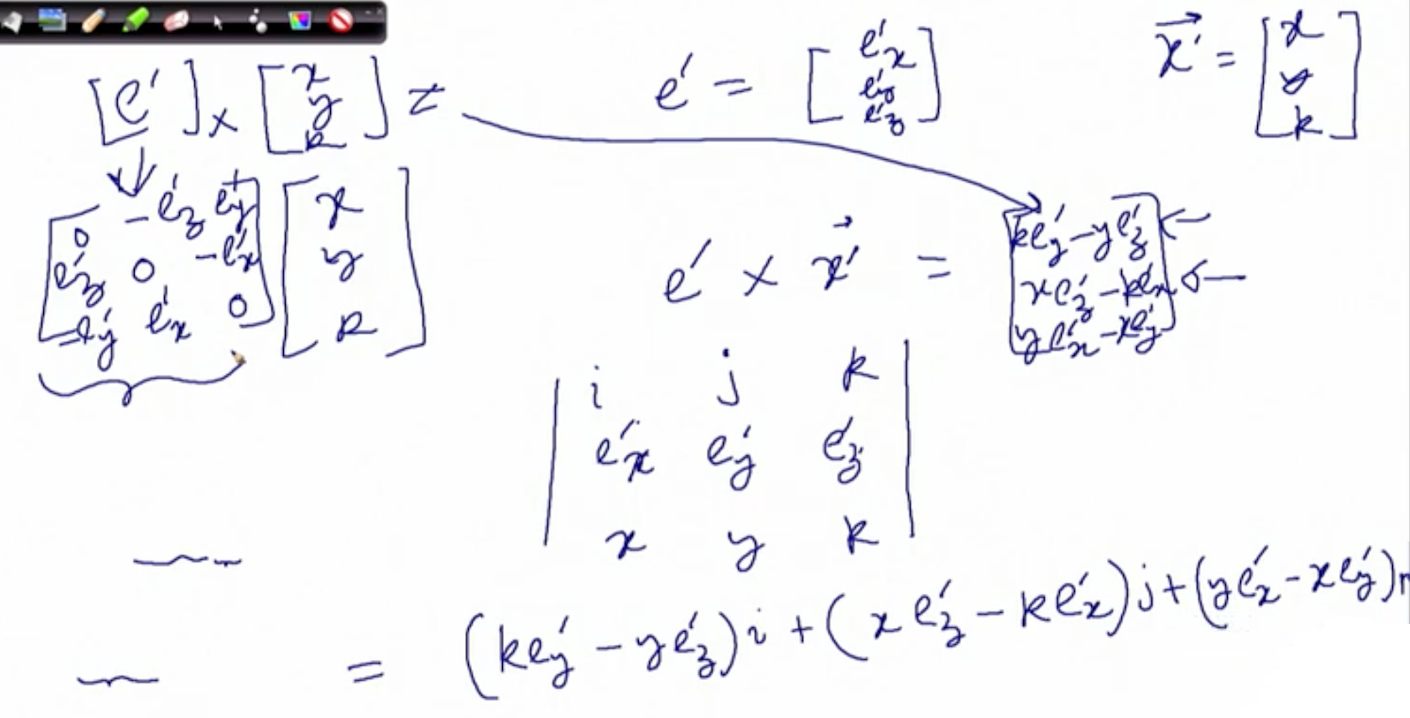 [e']× [x y k] =
e' = [e'x e'y e'z]
x⃗' = [x y k]
[0 -e'z e'y
e'z 0 -e'x
-e'y e'x 0] [x y k]
e' × x⃗' = [ke'y - ye'z
xe'z - ke'x
ye'x - xe'y]
| i j k |
| e'x e'y e'z |
| x y k |
= (ke'y - ye'z)i + (xe'z - ke'x)j + (ye'x - xe'y)